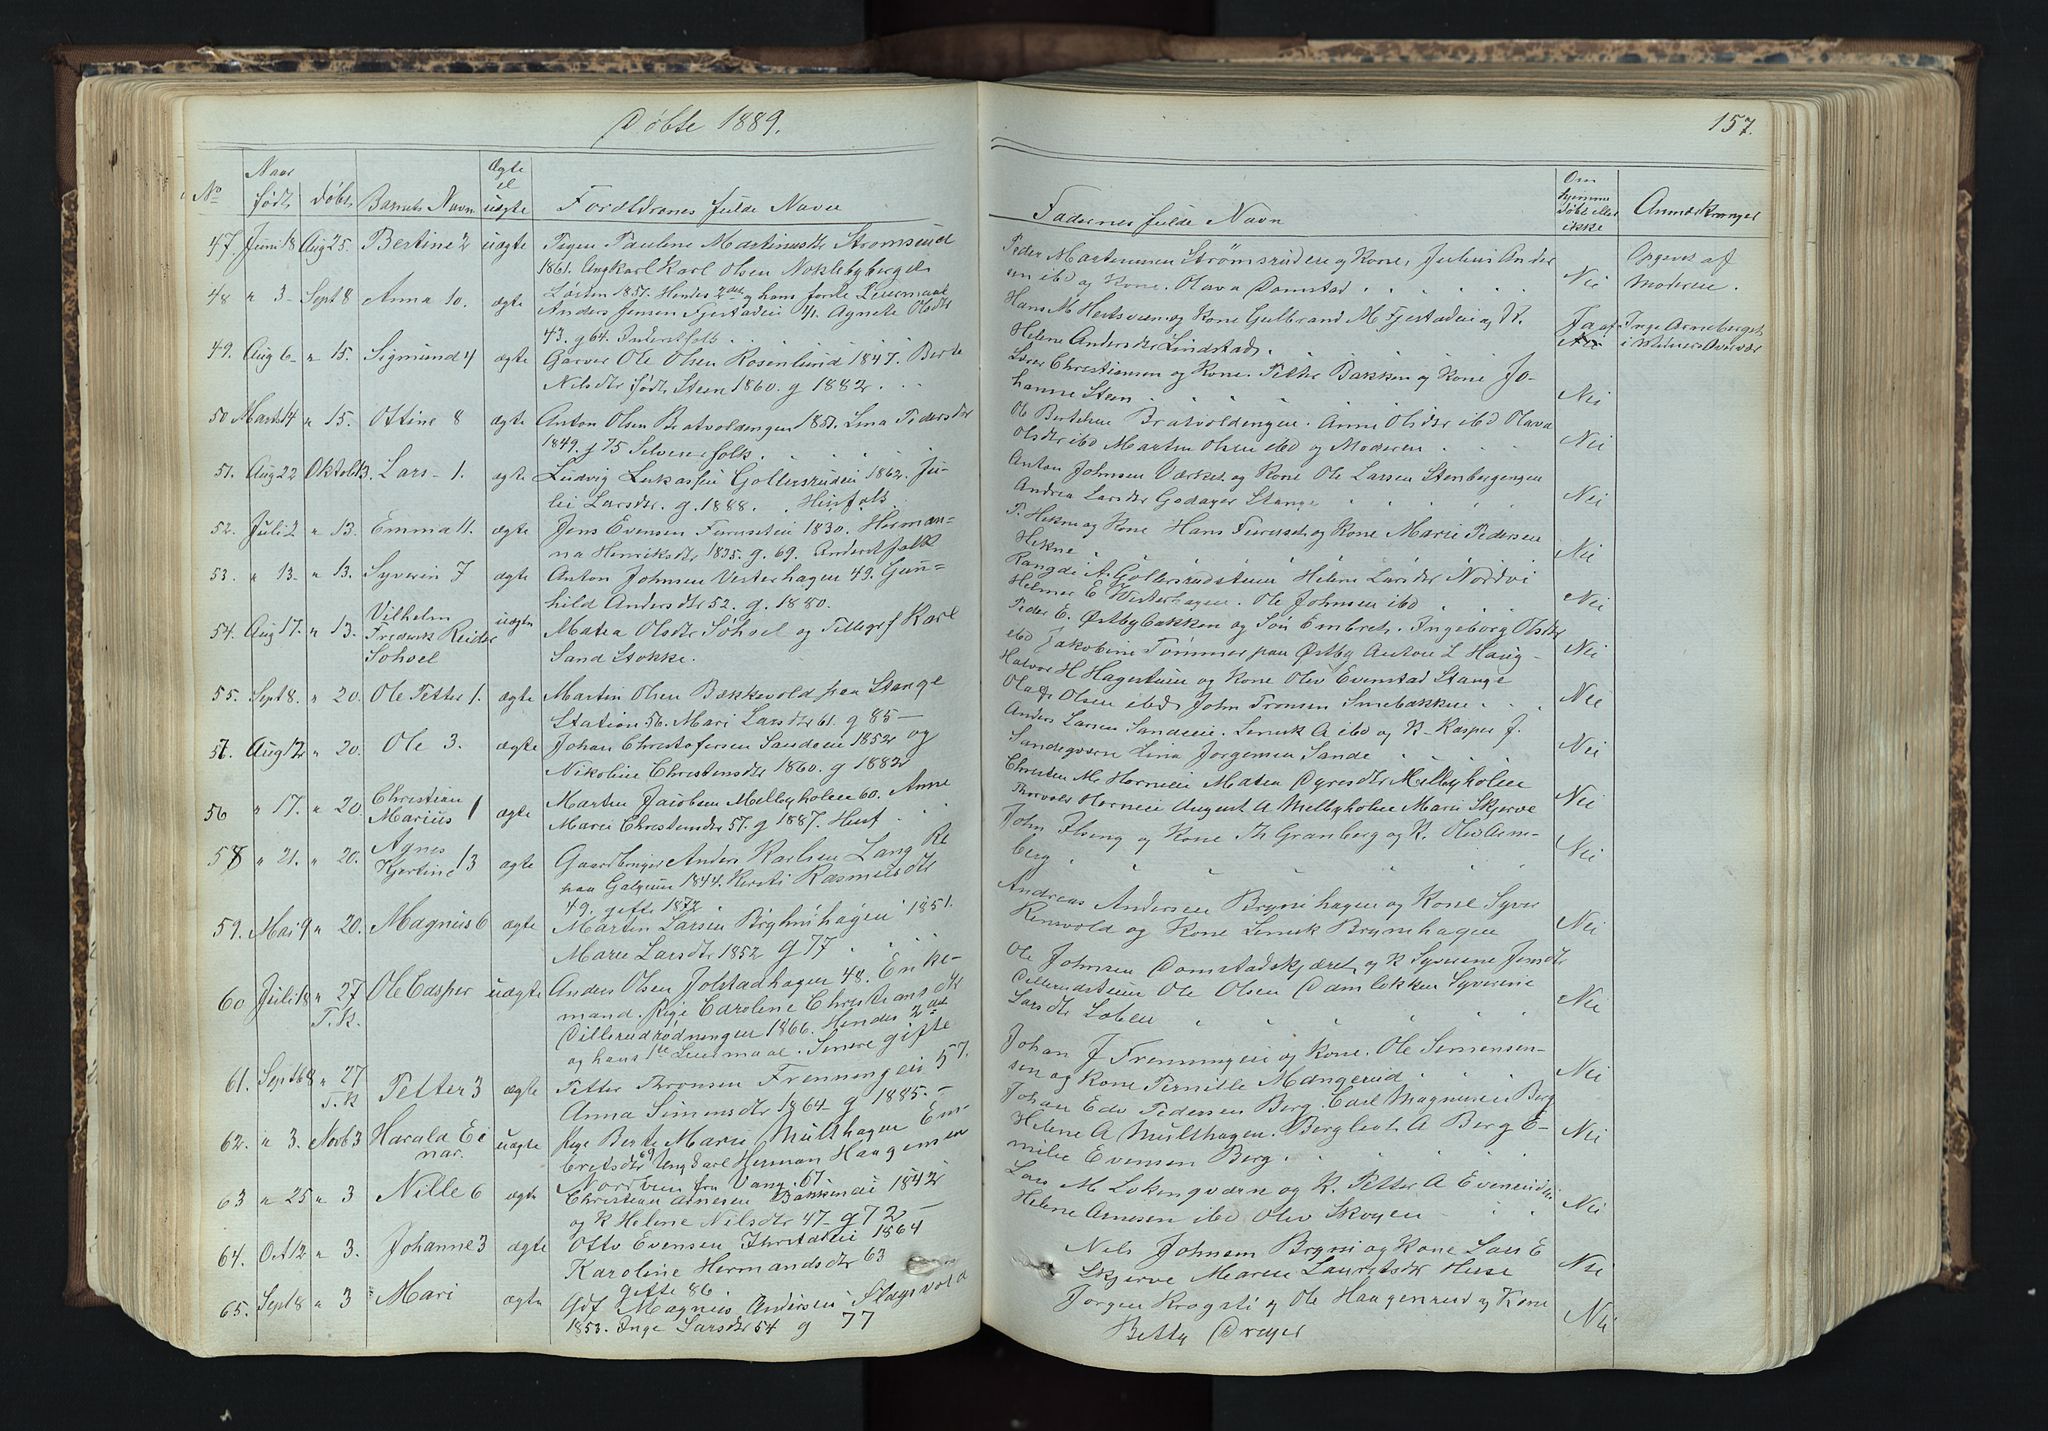 Döbte 1889.
157.
No
Naar födt
döbt
Barnets Navn
Ægte el uægte
Forældrenes fulde Navn
Faddernes fulde Navn
Om hjemmedöbt eller ikke
Anmærkninger
47. Juni 18 Aug 25. Bertine 2 uægte Pigen Pauline Martinusdtr Strömsrud
1861. Ungkarl Karl Olsen Noklebybergets
Löiten 1857. Hendes 2det og hans förste Leiermaal
Peder Martinusen Strömsrudeie og Kone, Julius Ander
sen ibd og Kone. Olava Damstad
Nei
Opgives af
Moderen.
48 " 3 Sept 8 Anna 10. ægte
Anders Jensen Fjestadeie Agnete Olsdtr
43. g 64. Inderstfolk
Hans M Hertsveen og Kone Gulbrand M Fjestadeie og K.
Helene Andersdtr Lindstad.
Ja af Inge Arneberget
i Vidners Overvær
49. Aug 6 " 15. Sigmund 4 ægte Garver Ole Olsen Rosenlund 1847. Berte
Nilsdtr födt Steen 1860. g 1882
Lærer Christiansen og Kone. Petter Bakken og Kone Jo-
hanne Steen
Nei
50 Marts 14 " 15. Ottine 8 ægte Anton Olsen Bratvoldengen 1851. Lina Pedersdtr
1849. g 75 Selveierfolk.
Ole Bertelsen Bratvoldengen. Anne Olsdtr ibd Olava
Olsdtr ibd Martin Olsen ibd og Moderen
Nei
51. Aug 22 Oktob 13. Lars 1. ægte Ludvig Lukassen Gollersrudeie 1862. Ju-
lie Larsdtr. g. 1888. Husfolk
Anton Johnsen Værket og Kone Ole Larsen Stenbergengen
Andrea Larsdtr Godager Stange
Nei
52. Juli 2 " 13. Emma 11. ægte Jens Evensen Furusteie 1830. Herman-
na Henriksdtr 1835. g. 69. Inderstfolk
P. Hekne og Kone Hans Furuset og Kone Marie Pedersen
Hekne
Nei
53. " 13 " 13. Syverin 7 ægte Anton Johnsen Vesterhagen 49. Gun-
hild Andersdtr 52. g. 1880.
Rangdi A. Gollersrudsteie Helene Larsdtr Nordvi
Helmer E Westerhagen. Ole Johnsen ibd
Nei
54. Aug 17. " 13. Vilhelm
Frederik Reider
Sohvel
uægte Matea Olsdtr Söhvel og Telegraf Karl
Sand Stokke.
Peder E. Östbybakken og Sön Embret. Ingeborg Olsdtr
ibd Jakobine Tömmer paa Östby Anton L Haug
Nei
55. Sept 8. " 20. Ole Petter 1. ægte Martin Olsen Bækkevold paa Stange
Station 56. Mari Larsdtr 61. g 85
Halvor H Hagesteie og Kone Oliv Evenstad Stange
Olaf Olsen ibd John Tronsen Smebakken
Nei
57. Aug 12 " 20. Ole 3. ægte Johan Christofersen Sandeie 1852 og
Nikoline Christensdtr 1860. g 1882
Anders Larsen Sandeie. Lensk A ibd og K Kasper J.
Sandeqværn Lina Jorgensen Sande
Nei
56 " 17. " 20. Christian
Marius 1 ægte Martin Jacobsen Melbyholen 60. Anne
Marie Christensdtr 57. g 1887. Husf
Christen M. Horneie Matea Dyresdtr Melbyholen
Thorvald Horneie August A Melbyholen Marie Skjerve
Nei
58 " 21. " 20. Agnes
Kjertine 13 ægte Gaardbruger Anders Karlsen Lang Re
paa Galgum 1844. Kersti Rasmusdtr
49. gifte 1872
John Ilseng og Kone Th Granberg og K. Ole Arne-
berg
Nei
59. Mai 9 " 20. Magnus 6 ægte Martin Larsen Brynhihagen 1851.
Marie Larsdtr 1852 g 77
Andreas Andersen Brynihagen og Kone Syver
Rensvold og Kone Lensk Brynihagen
Nei
60 Juli 18 " 27
T. K. Ole Casper uægte Anders Olsen Jolstadhagen 48. Enke-
mand. Pige Caroline Christiansdtr
Dillerudrödningen 1866. Hendes 2det
og hans 1ste Leiermaal. Senere gifte
Ole Johnsen Damstadskjæret og K Syverine Jensdtr
Dillerudsteie Ole Olsen Damlökken Syverine
Larsdtr Loben
Nei
61. Sept 8 " 27
T. K Petter 3 ægte Petter Tronsen Frenningeie 57.
Anna Simensdtr 1864 g 1885.
Johan J Frenningeie og Kone. Ole Simensen-
sen og Kone Pernille Mangerud
Nei
62. " 3. Novb 3 Harald Ei
nar.
uægte Pige Berte Marie Multhagen Em-
bretsdtr 69 Ungkarl Herman Haagensen
Nordveen fra Vang 67.
Johan Edv Pedersen Berg. Carl Magnusen Berg
Helene A Multhagen. Bergliot A Berg E-
milie Evensen Berg.
Nei
63 " 25 " 3 Nille 6 ægte Christian Arnesen Bakkeneie 1842
og K Helene Nilsdtr 47 g 72
Lars M Lokengværn og K. Petter A Evenrudeie
Helene Arnesen ibd Oliv Skoyen
Nei
64. Oct 12 " 3. Johanne 3 ægte Otto Evensen Ihrstadeie 1864
Karoline Hermandsdtr 63
gifte 86.
Nils Johnsen Bryni og Kone Lars E
Skjerve Maren Lauritsdtr Huse
Nei
65. Sept 8 " 3 Mari ægte Gdf Magnus Andersen Slagsvold
1853. Inge Larsdtr 54 g 77
Jorgen Krogsti og Ole Haagenrud og Kone
Betty Dreyer
Nei